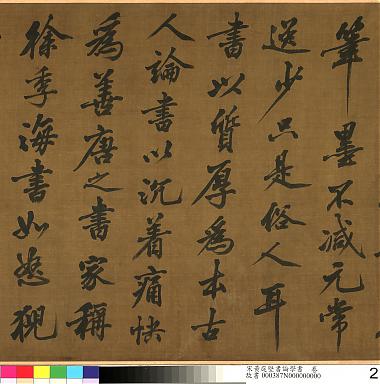 筆墨不減元常
逸少只是俗人耳
書以質厚為本古
人論書以沉着痛快
為善唐之書家稱
徐季海書如怒猊
宋黃庭堅書論學書 卷
故書000387N000000000
2